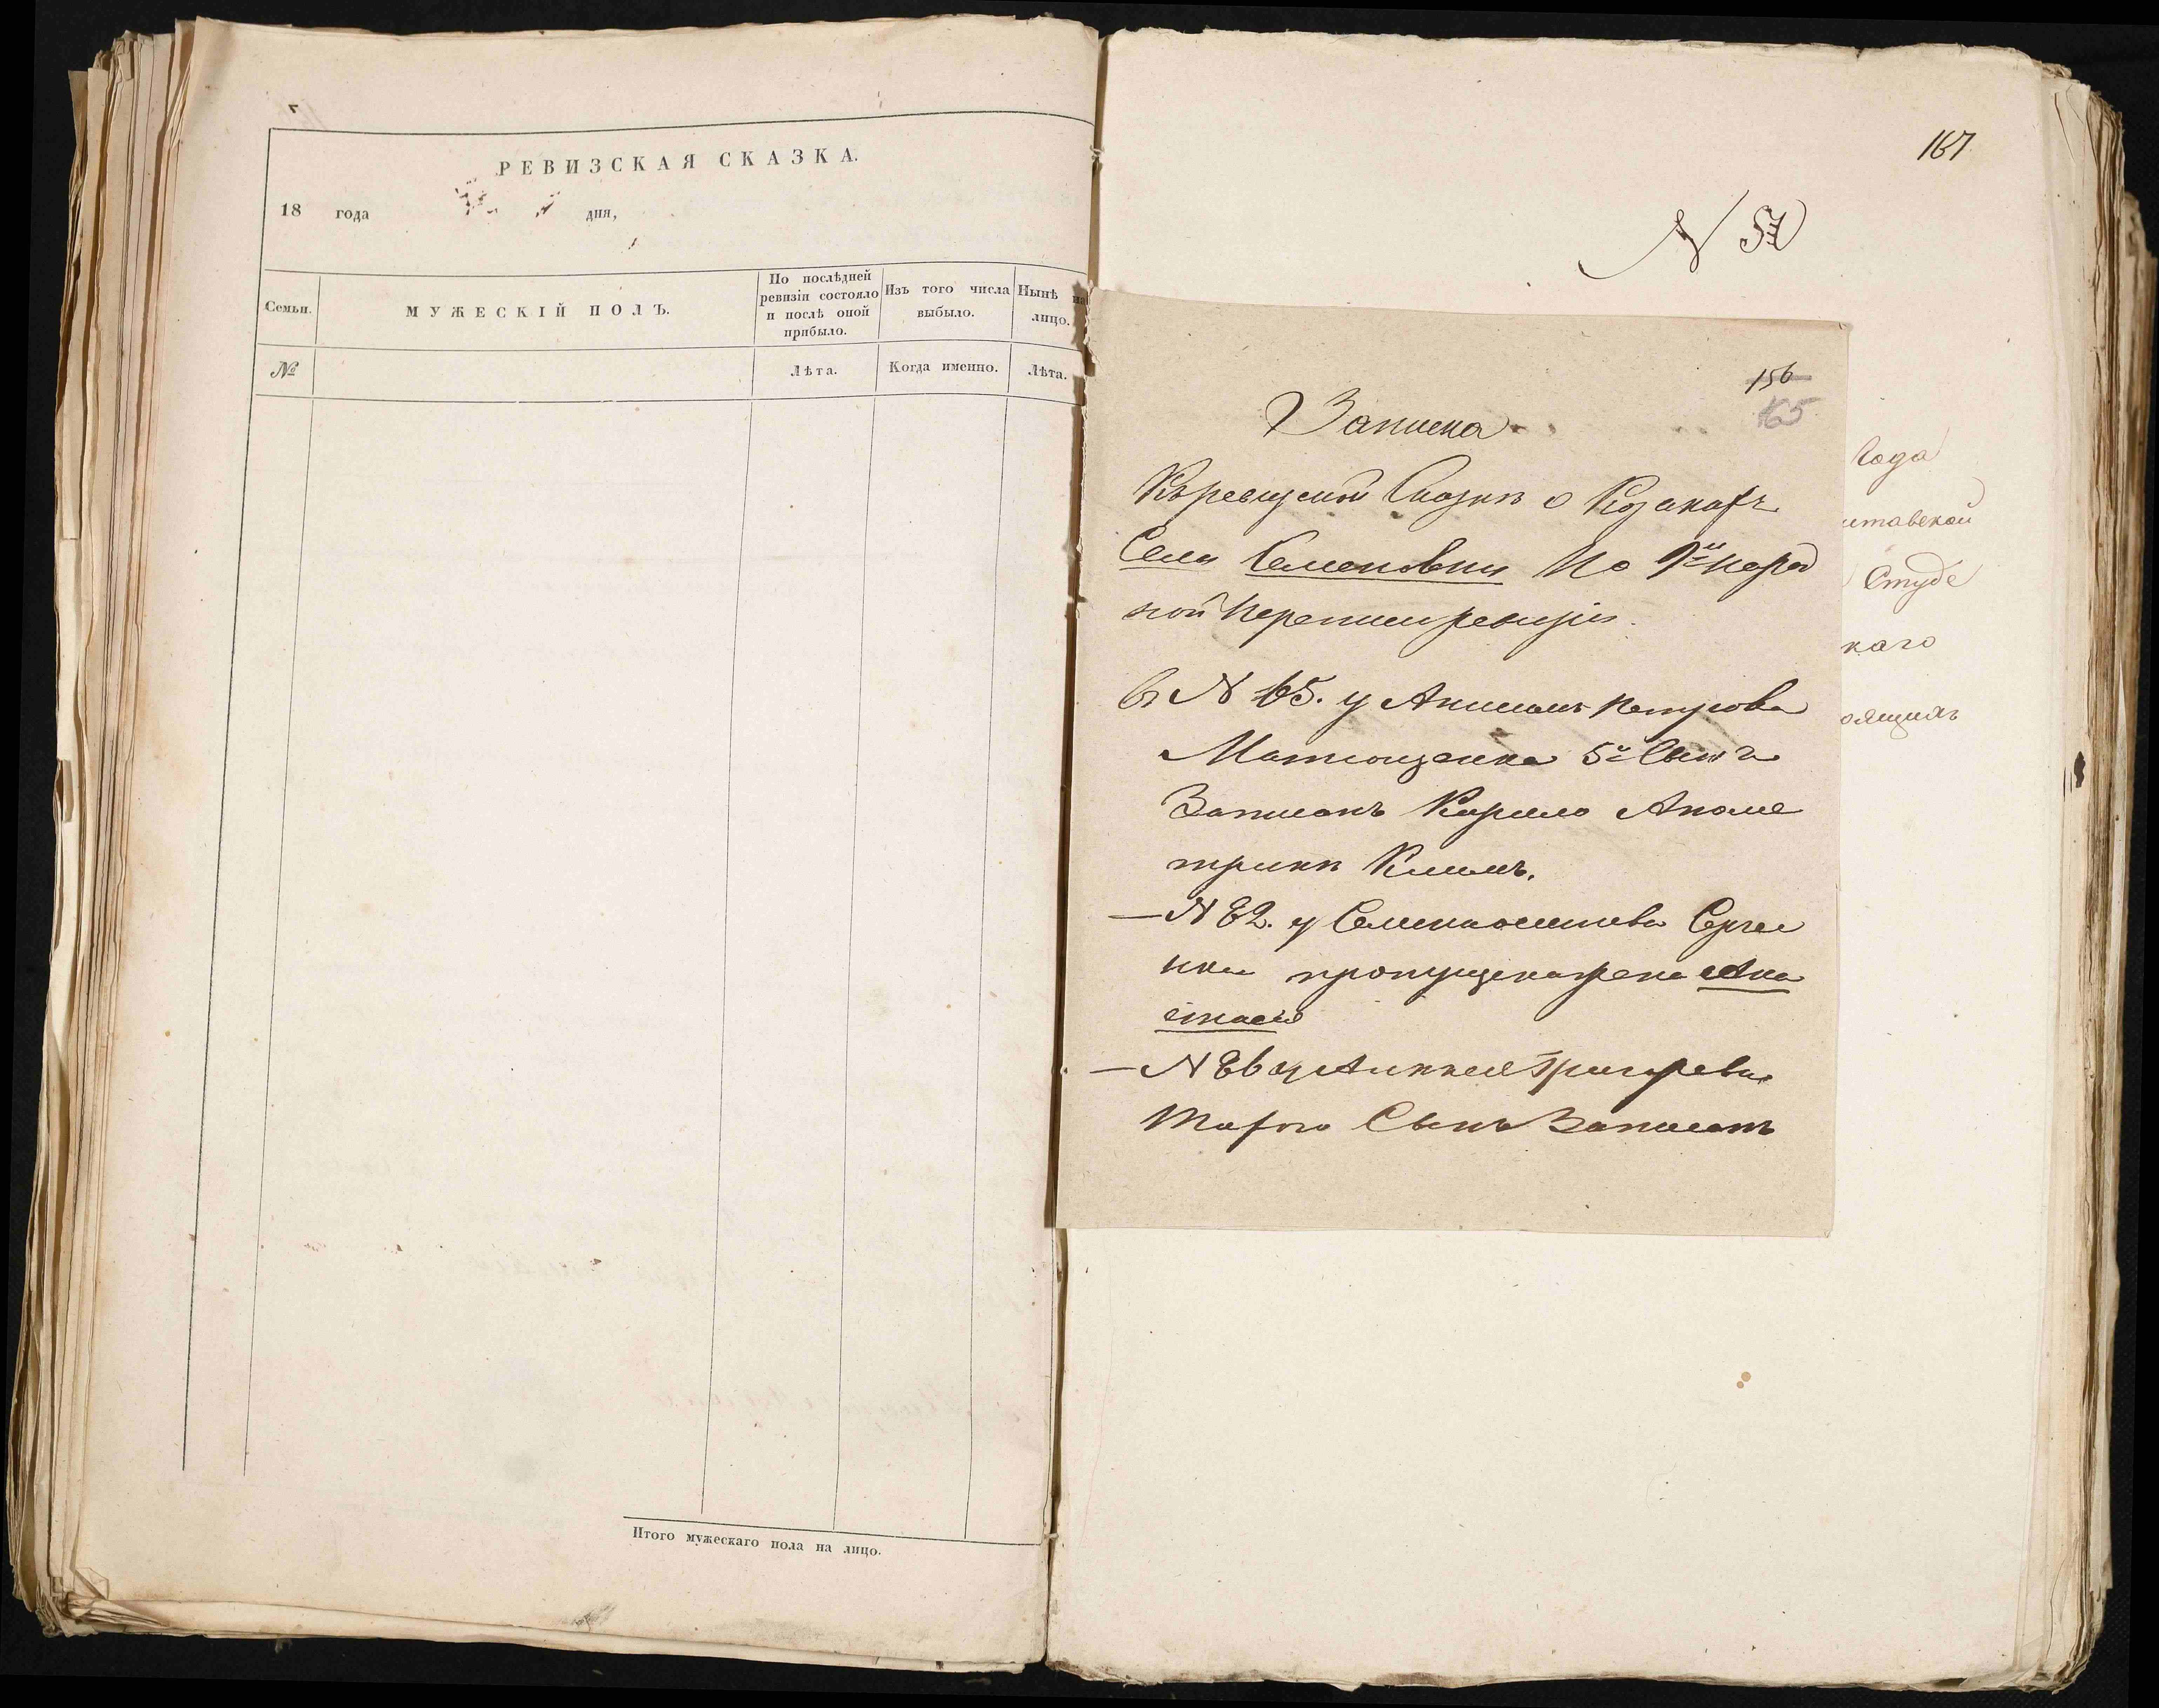 РЕВИЗСКАЯ СКАЗКА.
18 года дня,
Семьи.
МУЖЕСКІЙ ПОЛЪ.
По послѣдней ревизіи состояло и послѣ оной прибыло.
Изъ того числа выбыло.
Нынѣ на лицо.
№
Лѣта.
Когда именно.
Лѣта.
Итого мужескаго пола на лицо.
167
N 57
156
165
Записка
Къ ревизской Сказкѣ о Козакахъ
Села Семеновки По 9й народ
ной Переписи ревизіи.
въ N 65. у Акима Петрова
Матющенка 5й Сынъ
Записанъ Кирило А по ме
трикѣ Климъ.
— N 82. у Семена Сергѣе
нка пропущена жена Ана
стасія
— N 86 у Алексея Григорьева
Сынъ Записанъ
Года
лтавской
Студе
каго
оящихъ